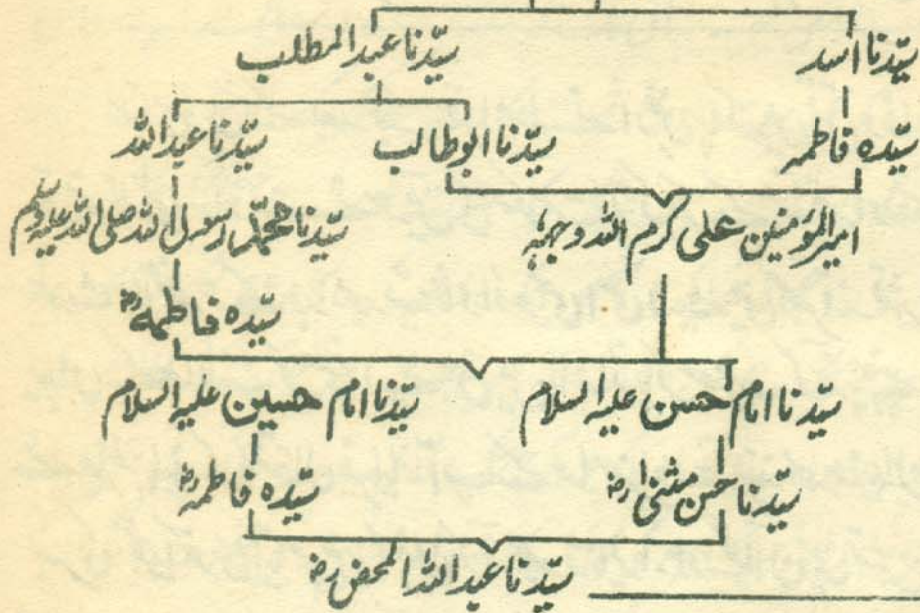 سیّدنا اسد سیّدنا عبدالمطلب
سیّدہ فاطمہ سیّدنا ابوطالب سیّدنا عبداللہ
امیرالمؤمنین علی کرم اللہ وجہہٗ سیّدنا محمّد رسول اللہ صلی اللہ علیہ وسلم
سیّدہ فاطمہؓ
سیّدنا امام حسن علیہ السلام سیّدنا امام حسین علیہ السلام
سیّدنا حسن مثنیٰ رضؓ سیّدہ فاطمہؓ
سیّدنا عبداللہ المحض رضؓ